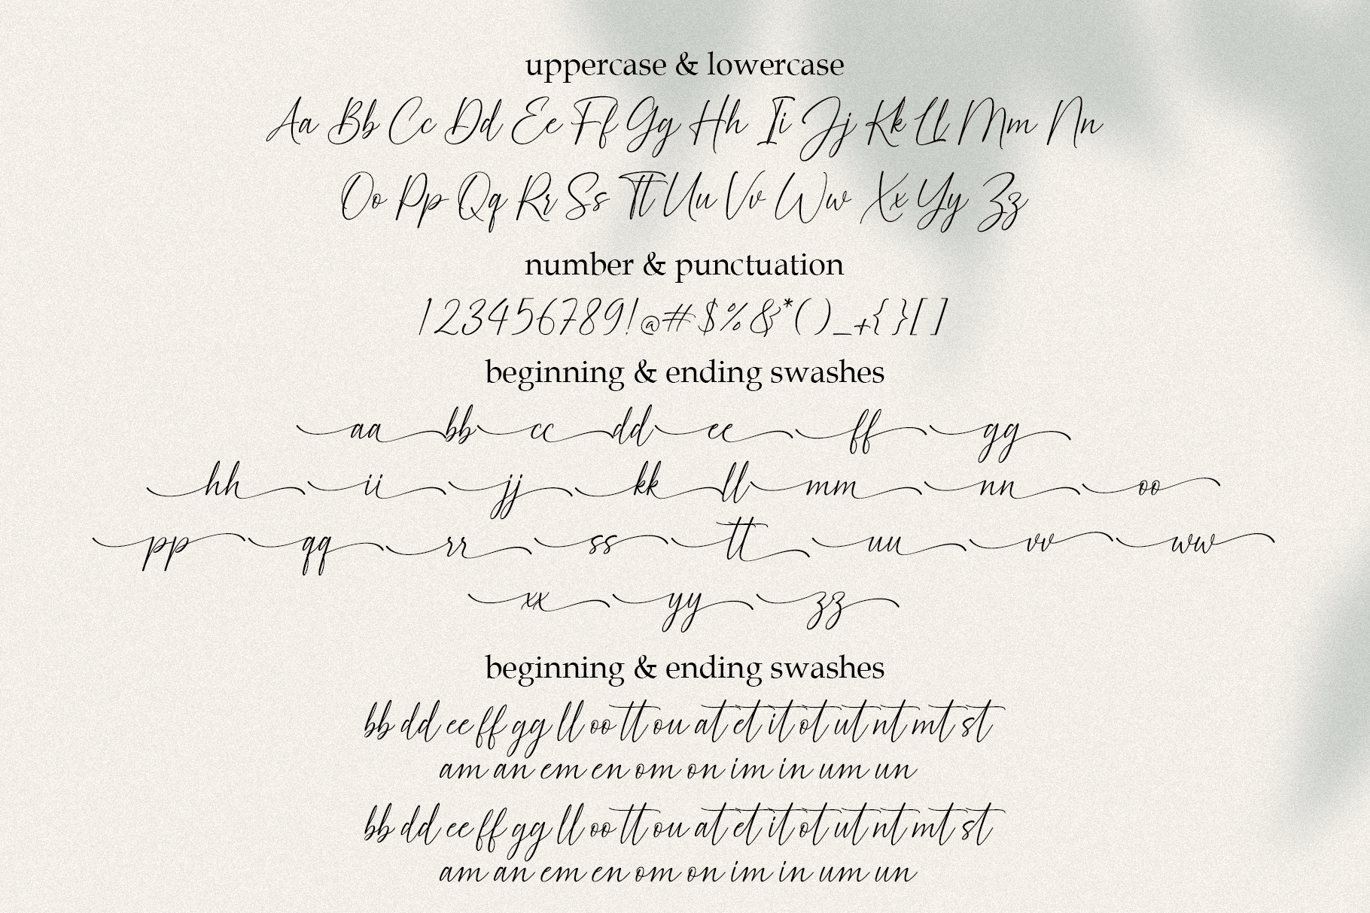 uppercase & lowercase
Aa Bb Cc Dd Ee Ff Gg Hh Ii Jj Kk Ll Mm Nn
Oo Pp Qq Rr Ss Tt Uu Vv Ww Xx Yy Zz
number & punctuation
123456789!@#$%&*()_+{}[]
beginning & ending swashes
aa bb cc dd ee ff gg
hh ii jj kk ll mm nn oo
pp qq rr ss tt uu vv ww
xx yy zz
beginning & ending swashes
bb dd ee ff gg ll oo tt ou at et it ot ut nt mt st
am an em en om on im in um un
bb dd ee ff gg ll oo tt ou at et it ot ut nt mt st
am an em en om on im in um un